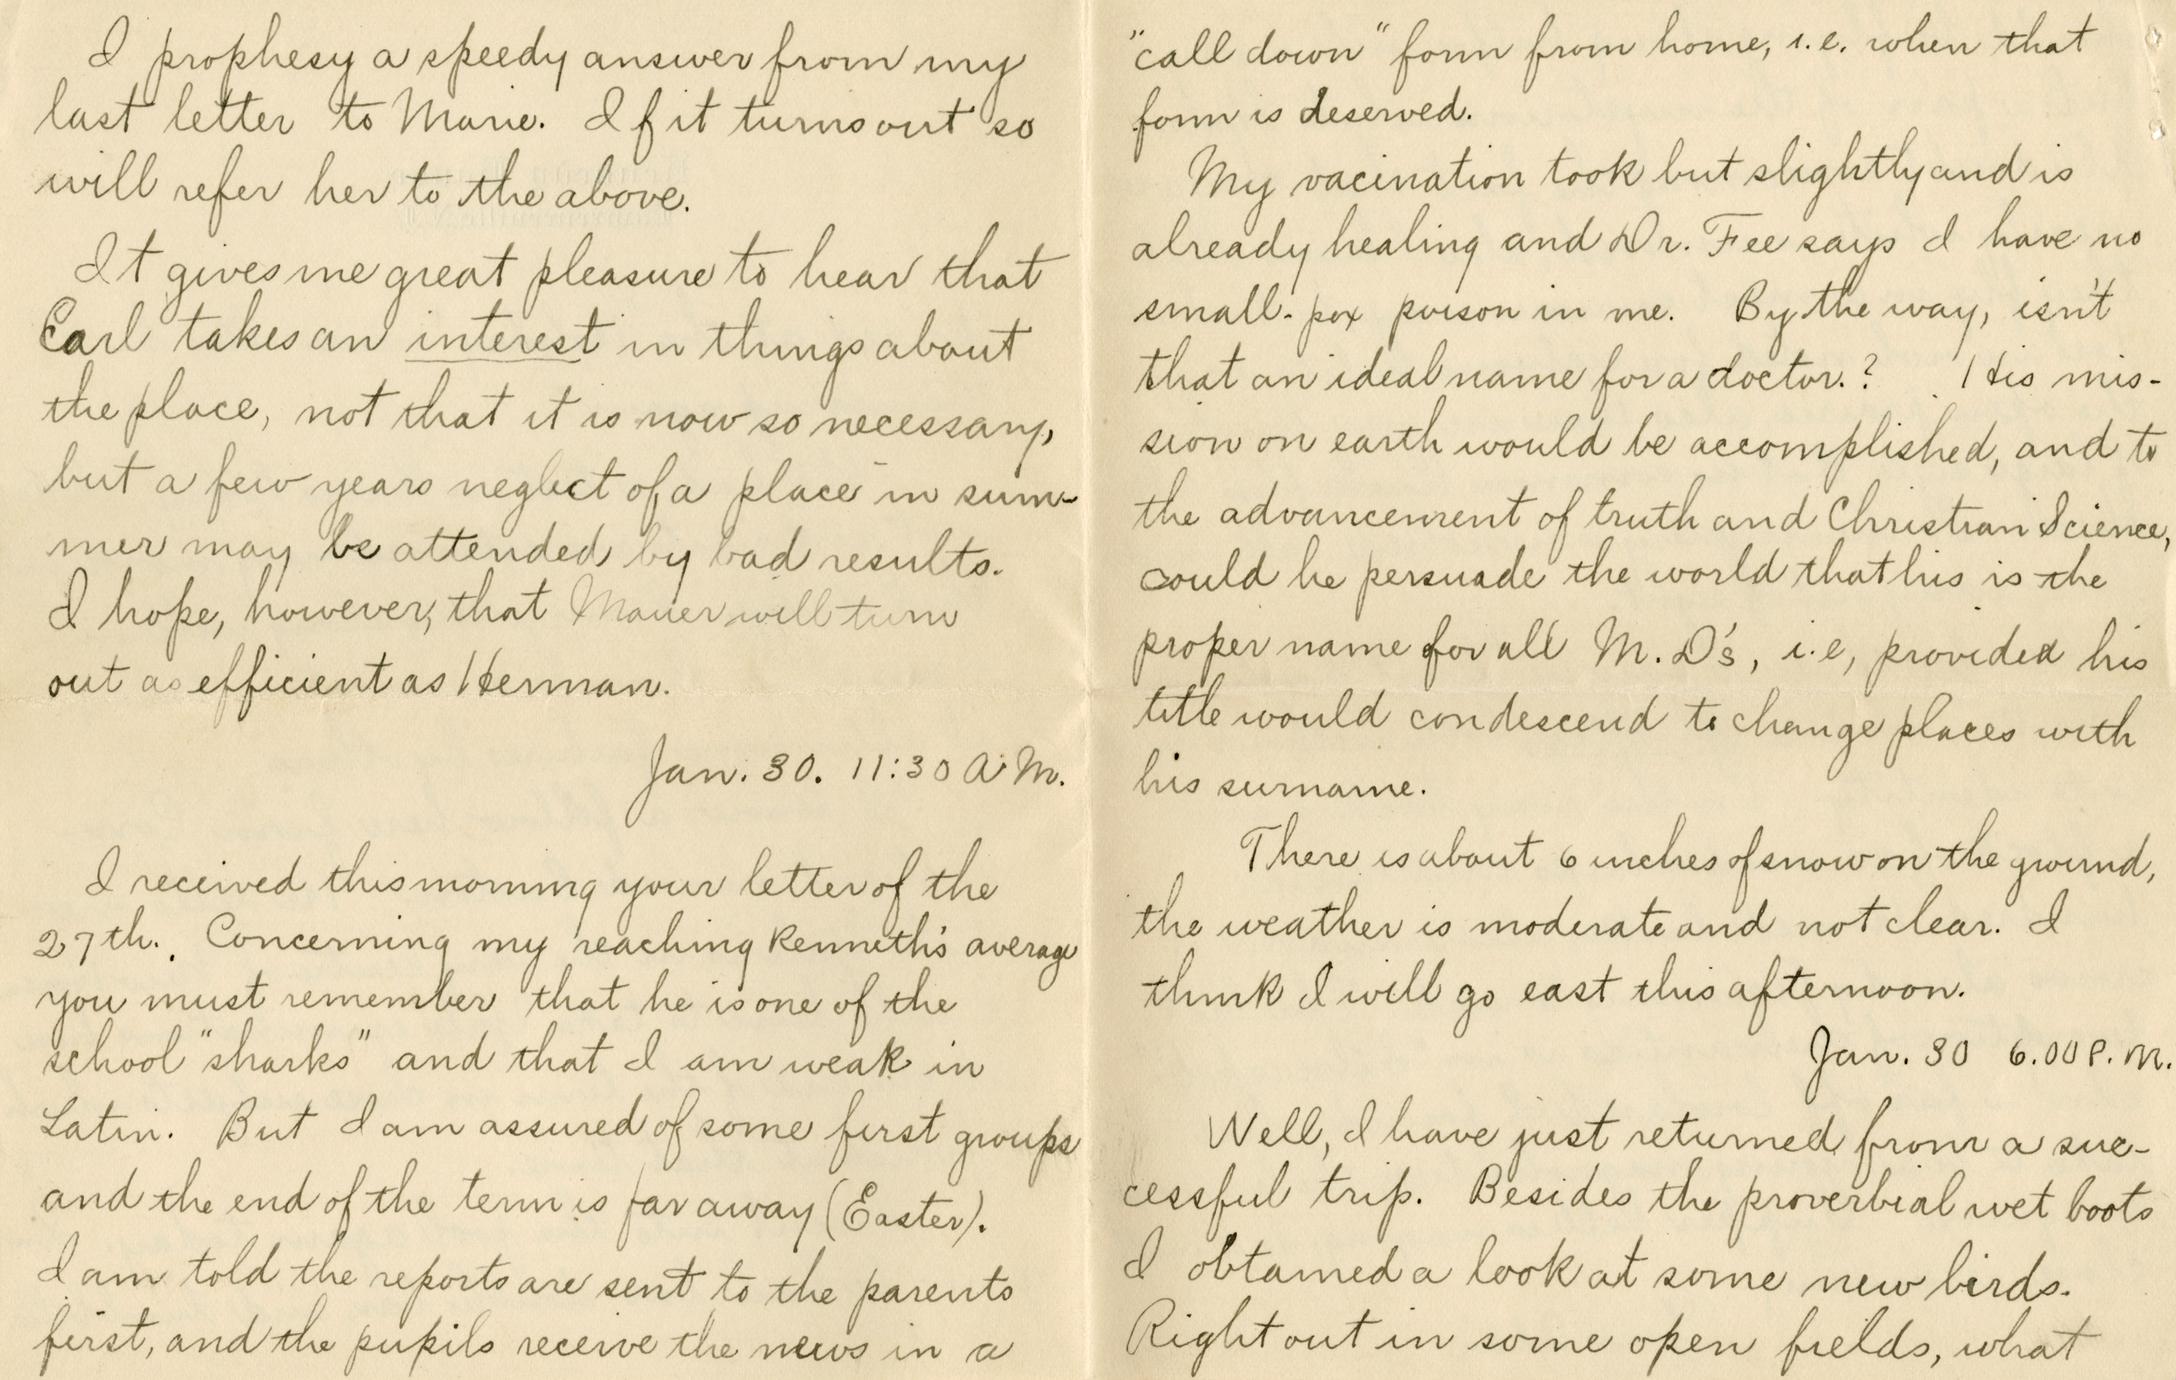 I prophesy a speedy answer from my
last letter to Marie. If it turns out so
will refer her to the above.
It gives me great pleasure to hear that
Carl takes an interest in things about
the place, not that it is now so necessary,
but a few years neglect of a place in sum-
mer may be attended by bad results.
I hope, however, that Mauer will turn
out as efficient as Herman.
Jan. 30. 11:30 A.M.
I received this morning your letter of the
27th. Concerning my reaching Kenneth's average
you must remember that he is one of the
school "sharks" and that I am weak in
Latin. But I am assured of some first groups
and the end of the term is far away (Easter).
I am told the reports are sent to the parents
first, and the pupils receive the news in a
"call down" form from home, i.e. when that
form is deserved.
My vacination took but slightly and is
already healing and Dr. Fee says I have no
small-pox poison in me. By the way, isn't
that an ideal name for a doctor.? His mis-
sion on earth would be accomplished, and to
the advancement of truth and Christian Science,
could he persuade the world that his is the
proper name for all M.D's, i.e, provided his
title would condescend to change places with
his surname.
There is about 6 inches of snow on the ground,
the weather is moderate and not clear. I
think I will go east this afternoon.
Jan. 30 6.00 P.M.
Well, I have just returned from a suc-
cessful trip. Besides the proverbial wet boots
I obtained a look at some new birds.
Right out in some open fields, what